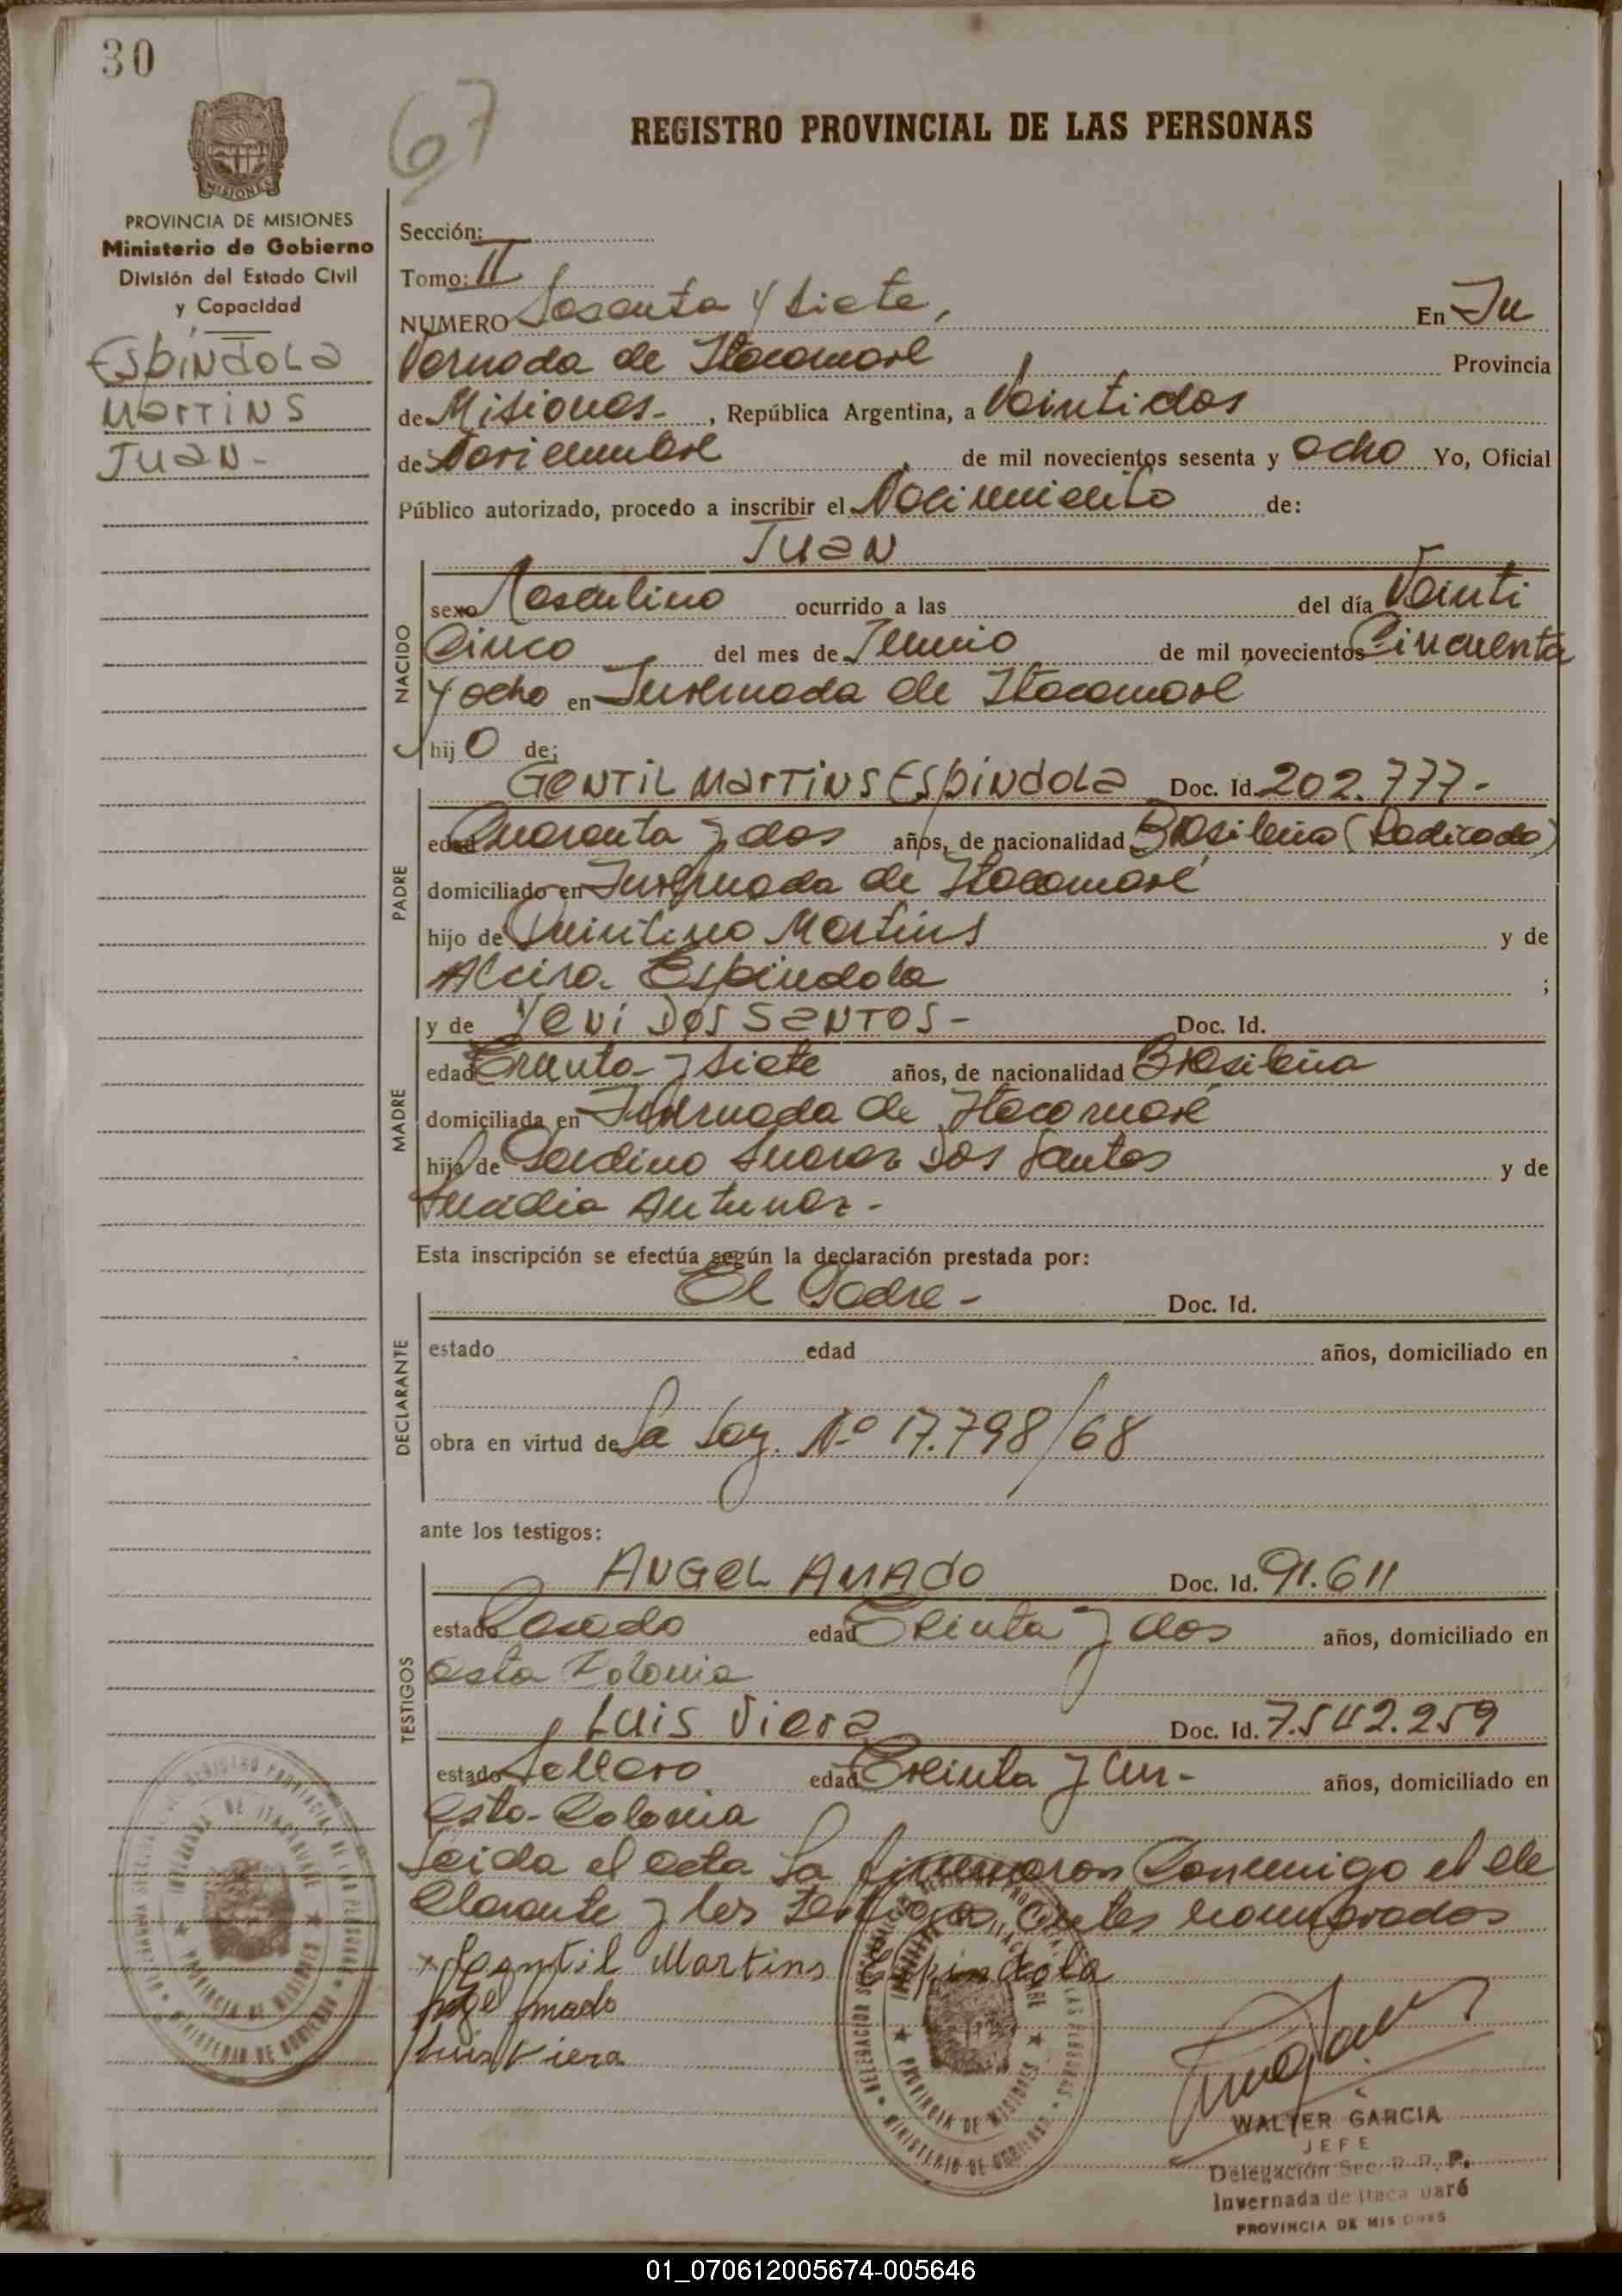 30
67
REGISTRO PROVINCIAL DE LAS PERSONAS
PROVINCIA DE MISIONES
Ministerio de Gobierno
División del Estado Civil
y Capacidad
Espíndola
Martins
Juan-
Sección:
Tomo: II
NUMERO Sesenta y Siete, En In
vernada de Itacaruaré Provincia
de Misiones-, República Argentina, a Veintidos
de Noviembre de mil novecientos sesenta y ocho Yo, Oficial
Público autorizado, procedo a inscribir el Nacimiento de:
Juan
NACIDO
sexo Masculino ocurrido a las del día Veinti
Cinco del mes de Junio de mil novecientos Cincuenta
y ocho en Invernada de Itacaruaré
hij o de;
PADRE
Gentil Martins Espindola Doc. Id. 202.777-
edad Cuarenta y dos años, de nacionalidad Brasileña (Radicado)
domiciliado en Invernada de Itacaruaré
hijo de Quintino Martins y de
Alcira Espindola ;
MADRE
y de Yeni Dos Santos- Doc. Id.
edad Treinta y siete años, de nacionalidad Brasileña
domiciliada en Invernada de Itacaruaré
hija de Dos Santos y de
Antunez-
Esta inscripción se efectúa según la declaración prestada por:
DECLARANTE
El Padre- Doc. Id.
estado edad años, domiciliado en
obra en virtud de La Ley. Nº 17.798/68
ante los testigos:
TESTIGOS
Angel Amado Doc. Id. 91.611
estado Casado edad Treinta y dos años, domiciliado en
esta Colonia
y Luis Viera Doc. Id. 7.542.259
estado Soltero edad Treinta y Un- años, domiciliado en
esta Colonia
Leida el acta la firmaron Conmigo el de
clarante y los testigos antes nombrados
x Gentil Martins Espindola
Amado
Luis Viera
WALTER GARCIA
JEFE
Delegación Sec. R. P. P.
Invernada de Itacaruaré
PROVINCIA DE MISIONES
01_070612005674-005646